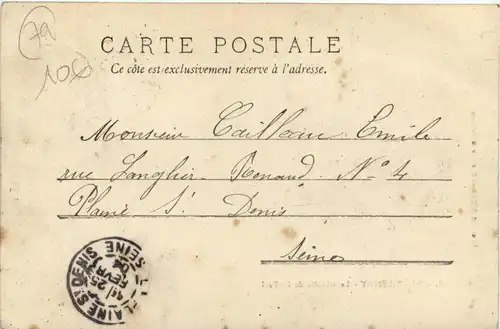 79
106
CARTE POSTALE
Ce côté est exclusivement réservé à l'adresse.
Monsieur Emile
rue Renaud N° 4
Plaine St Denis
Seine
PLAINE ST DENIS
SEINE
25
FEVR